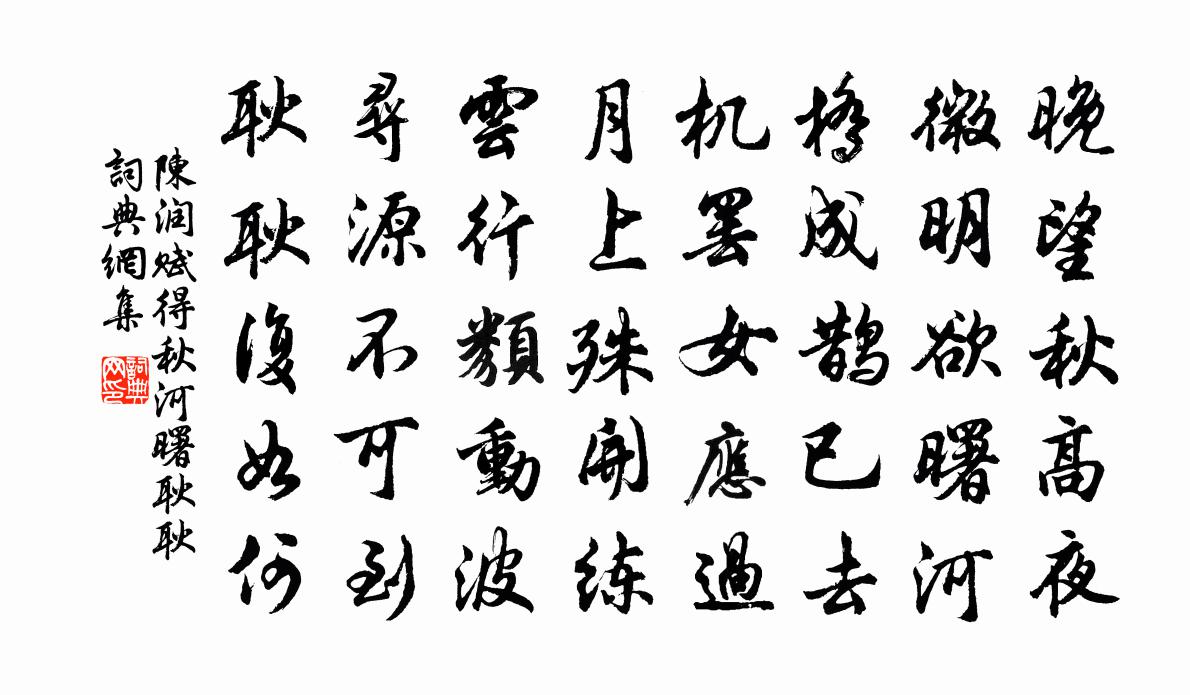 晚望秋高夜
微明欲曙河
橋成鵲已去
机罢女應過
月上殊開练
雲行類動波
尋源不可到
耿耿復如何
陳润赋得秋河曙耿耿
詞典網集
詞典网印